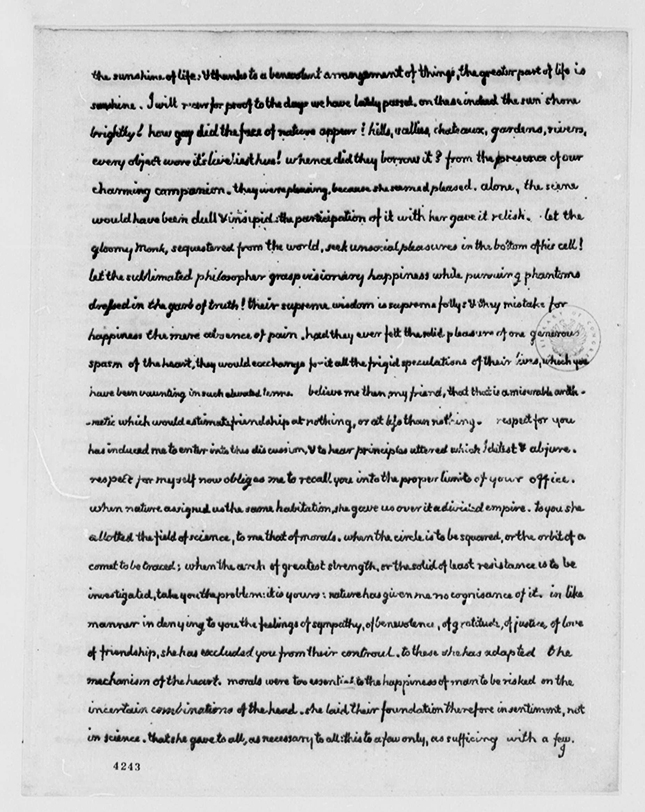 the sunshine of life: & thanks to a benevolent arrangement of things, the greater part of life is
sunshine. I will recur for proof to the days we have lately passed. on these indeed the sun shone
brightly! how gay did the face of nature appear! hills, vallies, chateaux, gardens, rivers,
every object wore it's liveliest hue! whence did they borrow it? from the presence of our
charming companion. they were pleasing, because she seemed pleased. alone, the scene
would have been dull & insipid: the participation of it with her gave it relish. let the
gloomy Monk, sequestered from the world, seek unsocial pleasures in the bottom of his cell!
let the sublimated philosopher grasp visionary happiness while pursuing phantoms
dressed in the garb of truth! their supreme wisdom is supreme folly: & they mistake for
happiness the mere absence of pain. had they ever felt the solid pleasure of one generous
spasm of the heart, they would exchange for it all the frigid speculations of their lives, which you
have been vaunting in such elevated terms. believe me then, my friend, that that is a miserable arith-
-metic which would estimate friendship at nothing, or at less than nothing. respect for you
has induced me to enter into this discussion, & to hear principles uttered which I detest & abjure.
respect for myself now obliges me to recall you into the proper limits of your office.
when nature assigned us the same habitation, she gave us over it a divided empire. to you she
allotted the field of science, to me that of morals. when the circle is to be squared, or the orbit of a
comet to be traced; when the arch of greatest strength, or the solid of least resistance is to be
investigated, take you the problem: it is yours: nature has given me no cognisance of it. in like
manner in denying to you the feelings of sympathy, of benevolence, of gratitude, of justice, of love
of friendship, she has excluded you from their controul. to these she has adapted the
mechanism of the heart. morals were too essential to the happiness of man to be risked on the
incertain combinations of the head. she laid their foundation therefore in sentiment, not
in science. that she gave to all, as necessary to all: this to a few only, as sufficing with a few.
4243